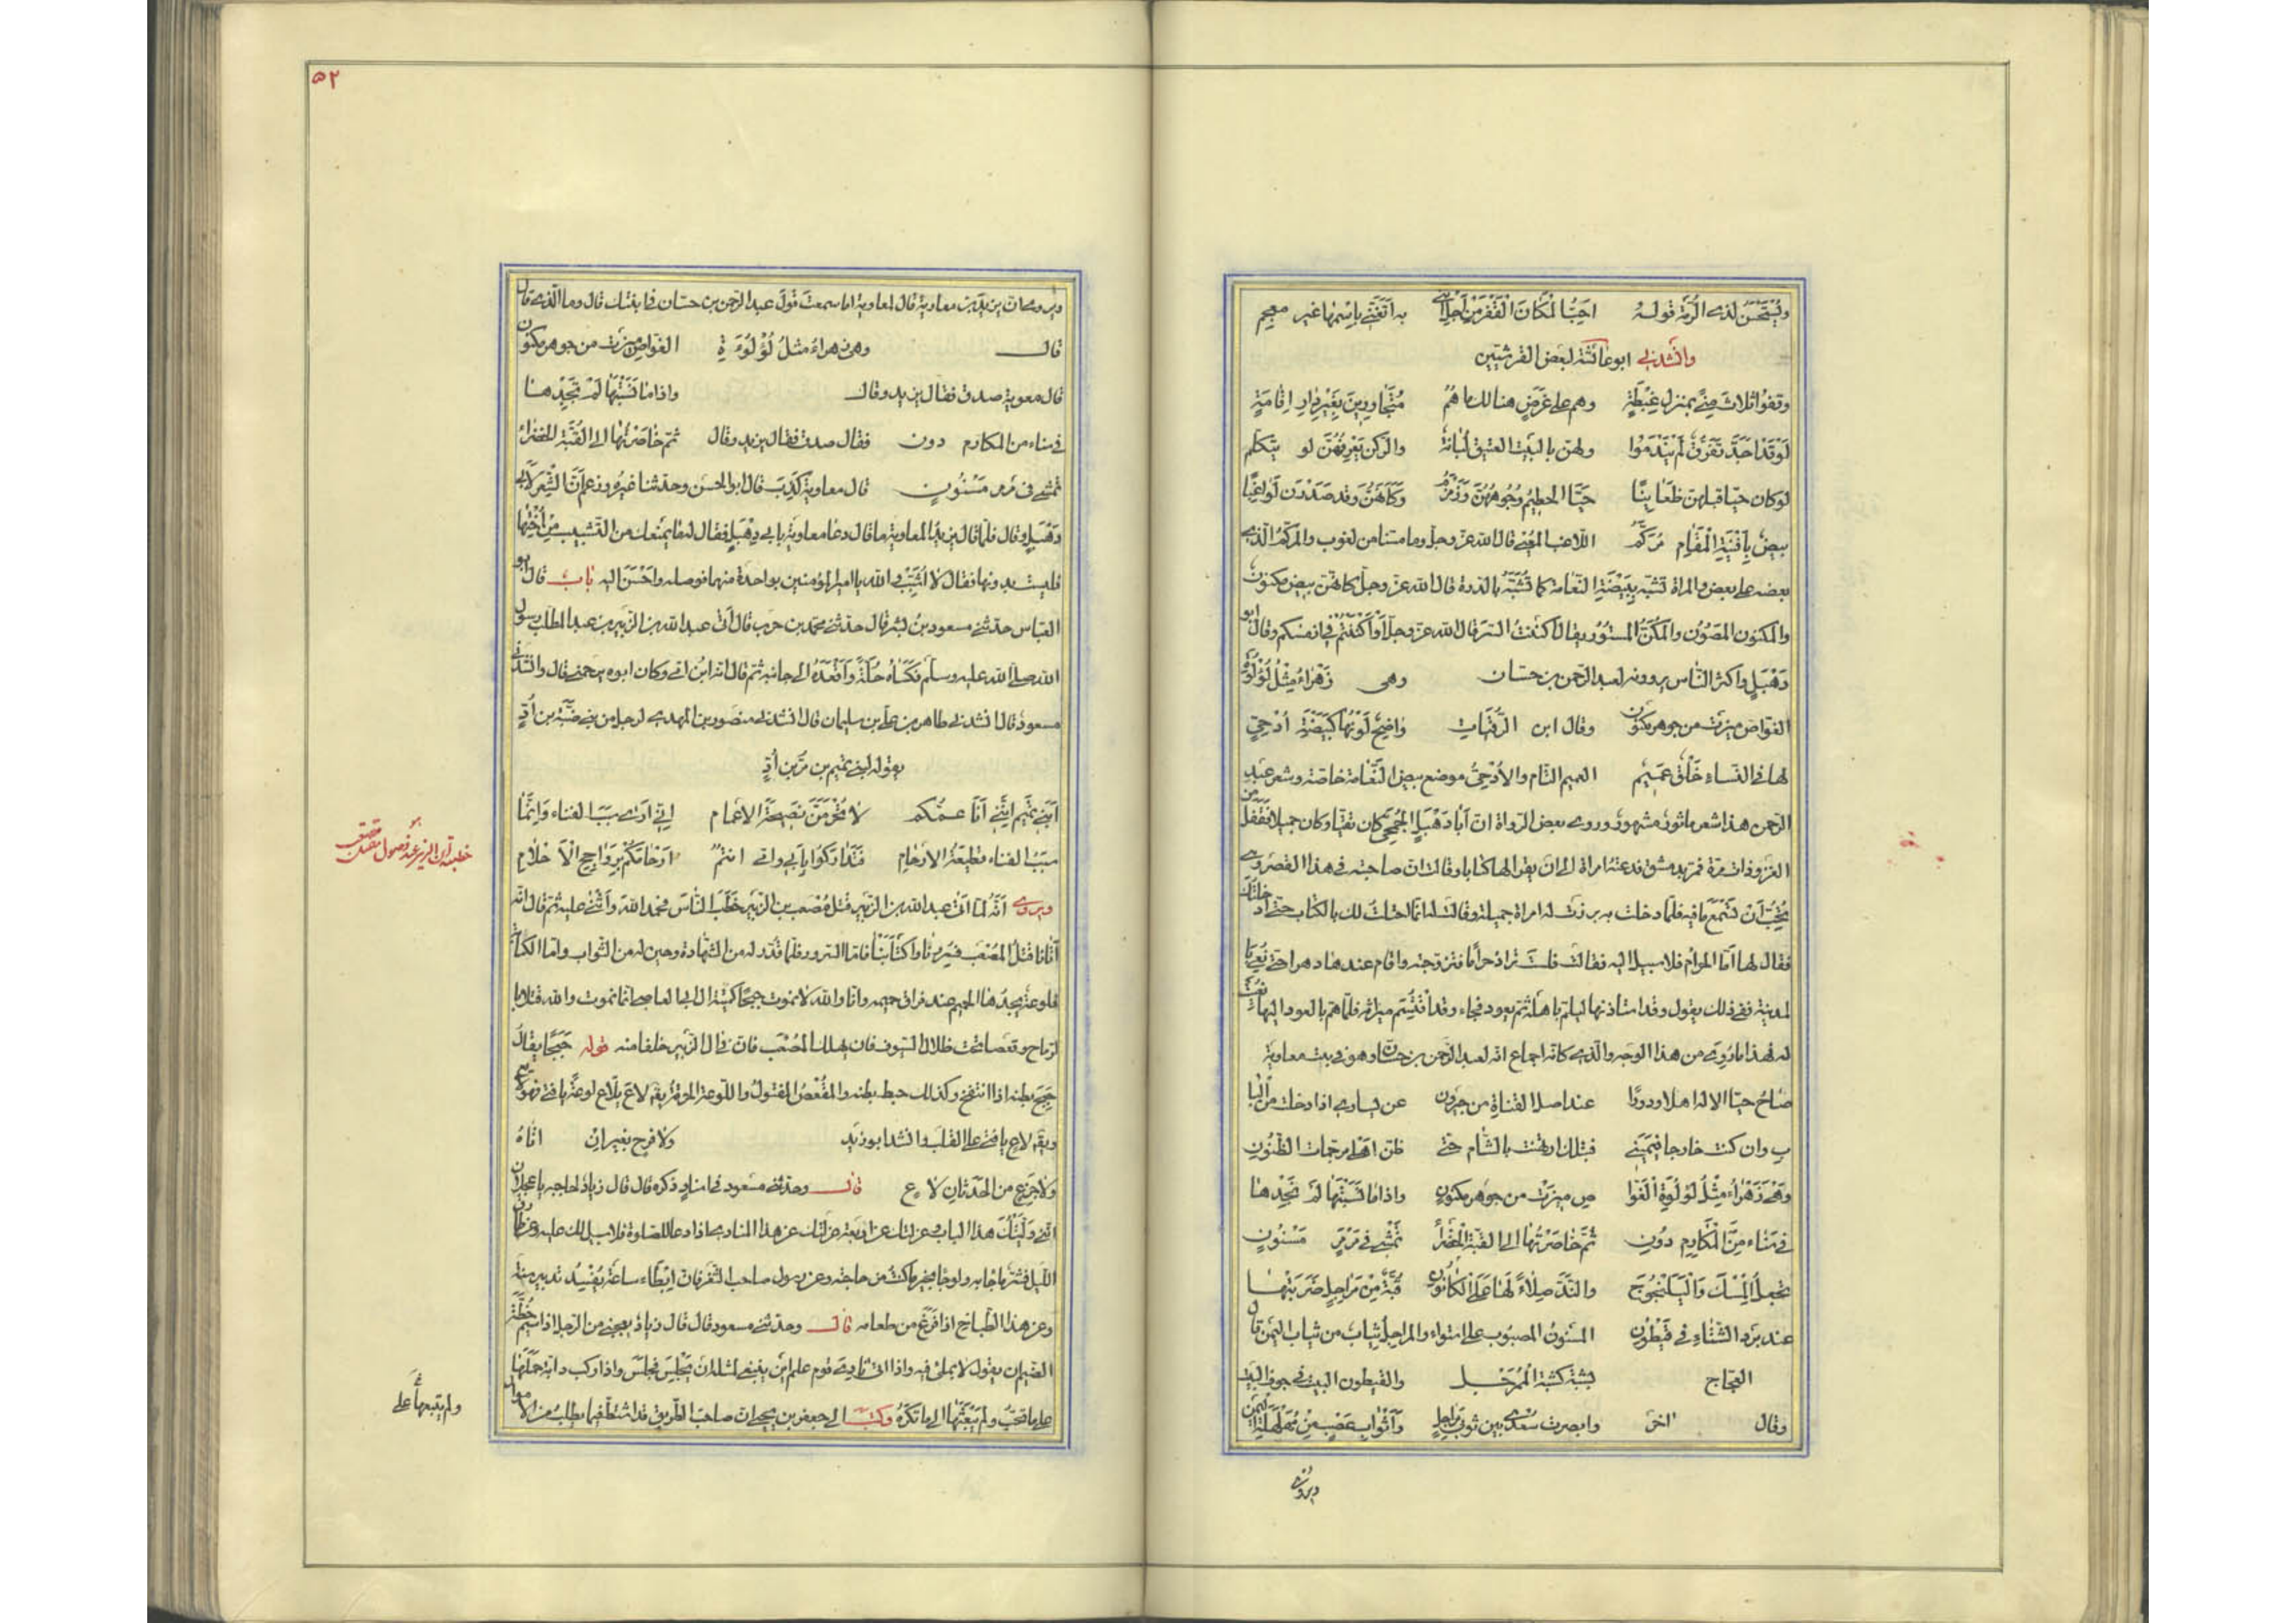 ويُستَحسَنُ لذي الرُّمّة قوله احبُّ المكانَ القَفْرَ مِنْ أجلِ انّني به أتغنّى باسمها غير معجم
وانشدني ابو عائشة لبعض القرشيّين
وقفوا ثلاث مِنًى بمنزل غِبْطَةٍ وهم على غَرَضٍ هنالك ما هُم مُتَجاورينَ بِغَيْرِ دارِ إقامَةٍ
لَوْ قَدْ أجَدَّ تَفَرُّقٌ لَمْ يَنْدَمُوا ولهن بالبَيْتِ العتيقِ لُبانَةٌ والرّكن يَعْرِفُهُنَّ لو يتكلم
لو كان حيّا قبلهن ظعاينًا حيّا الحطيمُ وُجُوهَهُنَّ وَزَمْزَمُ وكأنهنّ وقد صدرن لواغبًا
بيضٌ بأفنيةِ المَقامِ مُرَكَّمُ اللاغب المُعْيى قال الله عزّ وجلّ وما مسّنا من لغوب والمركّم الذي
بعضه على بعض والمراة تشبّه ببَيْضَةِ النّعامة كما تُشَبَّهُ بالدرة قال الله عزّ وجلّ كانهنّ بيض مكنون
والمكنون المصون والمُكَنُّ المستُورُ يقال أكننتُ السّرّ قال الله عزّ وجلّ او أكننتُمْ في انفسكم وقال ابو
دَهْبَلٍ واكثر النّاس يروونه لعبد الرّحمن بن حسّان وهى زَهْراءُ مِثْلُ لُؤْلُؤَةِ
الغوّاص ميزت من جوهر مكنون وقال ابن الرُّقَيّات واضحٌ لَوْنُها كبَيْضَةِ أُدْحِىٍّ
لها فى النساءِ خَلْقٌ عَمِيمُ العميم التّام والاُدْحِىُّ موضع بيض النَّعامة خاصّة وشعر عبد
الرّحمن هذا شعر ماثورٌ مشهورٌ وروى بعض الرّواة انّ أبا دَهْبَلٍ الجُمَحِىَّ كان تقيّا وكان جميلا فقفل من
الغزو ذات مرّة فمرّ بدمشق فدعته امراة الى ان يقرا لها كتابا وقالت ان صاحبته فى هذا القصر وهى
تحبّ أن تسمع ما فيه فلمّا دخلت به برزت له امراة جميلة وقالت له انّما احتلت لك بالكتاب حتى ادخلتك
فقال لها امّا الحرامُ فلا سبيل اليه فقالت فلست تراد حراما فتزوّجته واقام عندها دهرا حتى نُعِىَ با
لمدينة ففى ذلك يقول وقد استاذنها ليلمّ باهله ثم يعود فجاء وقد اقتُسِمَ ميراثه فلمّا همّ بالعود اليها نُعِيت
له فهذا ما رُوِىَ من هذا الوجه والّذى كانّه اجماع انّه لعبد الرّحمن بن حسّان وهو فى بنت معاوية
صاحِ حيّا الاله اهلا ودورًا عند اصل القناةِ من جيرون عن يسارى اذا دخلت من البا
بِ وان كنت خارجا فيَمينى فبتلك ارتهنت بالشّام حتى ظنّ اهلى مرجمات الظّنونِ
وَهْىَ زَهْراءُ مِثْلُ لُؤْلُؤَةِ الغَوّا صِ ميزت من جوهر مكنونِ واذا ما نَسَبْتَها لَمْ تَجِدْها
فى سَناءٍ مِنَ المَكارِمِ دُونِ ثُمَّ خاصَرْتُها الى القبّة الخَضْراءِ نَمْشى فى مَرْمَرٍ مَسْنُونِ
تجعلُ المِسْكَ وَالْيَلَنْجُوجَ والنَّدَّ صِلاءً لَها عَلَى الْكانُونِ قُبَّةٌ مِنْ مَراجِلٍ ضَرَبَتْها
عند بَرْدِ الشّتاءِ فى قَيْطُونِ المسنُون المصبُوب على استواء والمراجلُ ثيابٌ من ثياب اليمن قال
العجّاج بشِيَةٍ كشِيَةِ المُمَرْجَلِ والقيطون البيت فى جوف البيت
وقال اخر وابصرت سُعْدَى بين ثوبى مَراجِلٍ وأثوابِ عَصْبٍ مِنْ مُهَلْهَلَةِ اليَمَنِ
ويُروى
٥٢
ويروى انّ يزيد بن معاوية قال لمعاوية اما سمعتَ قولَ عبد الرّحمن بن حسّان فى ابنتك قال وما الّذى قال
قال وهى زهراءُ مثلُ لُؤْلُؤَةِ الغوّاص ميزت من جوهر مكنون
قال معوية صدق فقال يزيد وقال واذا ما نَسَبْتَها لَمْ تَجِدْها
فى سناء من المكارم دون فقال صدق فقال يزيد وقال ثمّ خاصَرْتُها الى القُبّة الخضراء
تمشى فى مَرمرٍ مَسْنُونٍ قال معاوية كَذَبَ قال ابو الحسن وحدّثنا غيره وزعم أنّ الشّعر لأبى
دَهْبَلٍ وقال فلمّا قال يزيد لمعاوية ما قال دعا معاوية بابى دهبلٍ فقال له ما يمنعك من التشبيب من أختها
فليست بدونها فقال لا اُشبّب والله يا امير المؤمنين بواحدة منهما فوصله واحْسَنَ اليه باب قال ابو
العبّاس حدّثنى مسعود بن بشر قال حدّثنى محمّد بن حرب قال أتى عبد الله بن الزّبير بن عبد المطّلب رسول
الله صلّى الله عليه وسلّم فكَساهُ حُلَّةً وَأقْعَدَهُ الى جانبه ثمّ قال انّه ابن امّى وكان ابوه يرحمنى قال وانشدنى
مسعودٌ قال انشدنى طاهر بن على بن سليمان قال انشدنى منصور بن المهدى لرجل من بنى ضبّة بن أُدٍّ
يقوله لبنى تميم بن مرّ بن أُدٍّ
أبَنى تميم إنّنى أنا عمّكم لا تُحْرَمَنَّ نصيحةَ الاعمام إنّى ارى سبب الفناءِ وَإنّما
سببُ الفناء قطيعَةُ الارحامِ فتَدارَكُوا بأبى وامّى انتمُ ارحامَكُمْ بِرَواجِحِ الأحلامِ
ويروى أنّه لمّا اتى عبد الله بن الزّبير قتلُ مُصْعَب بن الزّبير خَطَبَ النّاسَ فحمد اللهَ وأثنى عليه ثمّ قال انّه
أتانا قتلُ المُصْعَبِ فسُرِرْنا واكتأَبْنا فامّا السّرور فلِما قُدّر له من الشّهادة وحيز له من الثّواب وامّا الكابة
فلوعةٌ يجدُها الحميم عند فراق حميمه وانّا والله لا نموت حَبَجًا كميتة ال ابى العاصِ انّما نموت والله قتلا با
لرّماح وقعصا تحت ظلال السّيوف فان يهلك المُصْعَب فانّ فى ال الزّبير خلفا منه قوله حَبَجًا يقال
حَبِجَ بطنه اذا انتفخ وكذلك حبط بطنه والمُقْعَصُ المقتول واللّوعة الحرقة يقٰ لاعَ يلاع لوعةً يا فتى فهو لاعٍ
ويقٰ لاعٍ يا فتى على القلب وانشد ابو زيد ولا فرحٍ بخيرٍ انْ اتاهُ
ولا جزعٍ من الحدثانِ لاعِ قال وحدّثنى مسعود فى اسنادٍ ذكره قال قال زيادٌ لحاجبه يا عجلان
انّى وَلّيْتُكَ هذا الباب وعزلتك عن اربعة عزلتك عن هذا المنادى اذا دعا للصّلوة فلا سبيل لك عليه وعن طارق
اللّيل فشرّ ما جا به ولو جا بخير ما كنتُ من حاجته وعن رسول صاحب الثّغر فان إبطاء ساعةٍ يُفسِدُ تدبير سنة
وعن هذا الطّباخ اذا فَرَغَ من طعامه قال وحدّثنى مسعود قال قال زيادٌ يعجبنى من الرّجل اذا سيم خُطّة
الضّيم ان يقول لا بملئ فيه واذا اتى نادى قوم علم اين ينبغى لمثله ان يَجْلِسَ فجلس واذا ركب دابّة حمَلَها
على ما تحبّ ولم يَبْعَثْها الى ما تكرَهُ وكتب الى جعفر بن يحيى انّ صاحب الطّريق قد اشتطّ فيما يطلب من الاموال
ولم يتبعها على